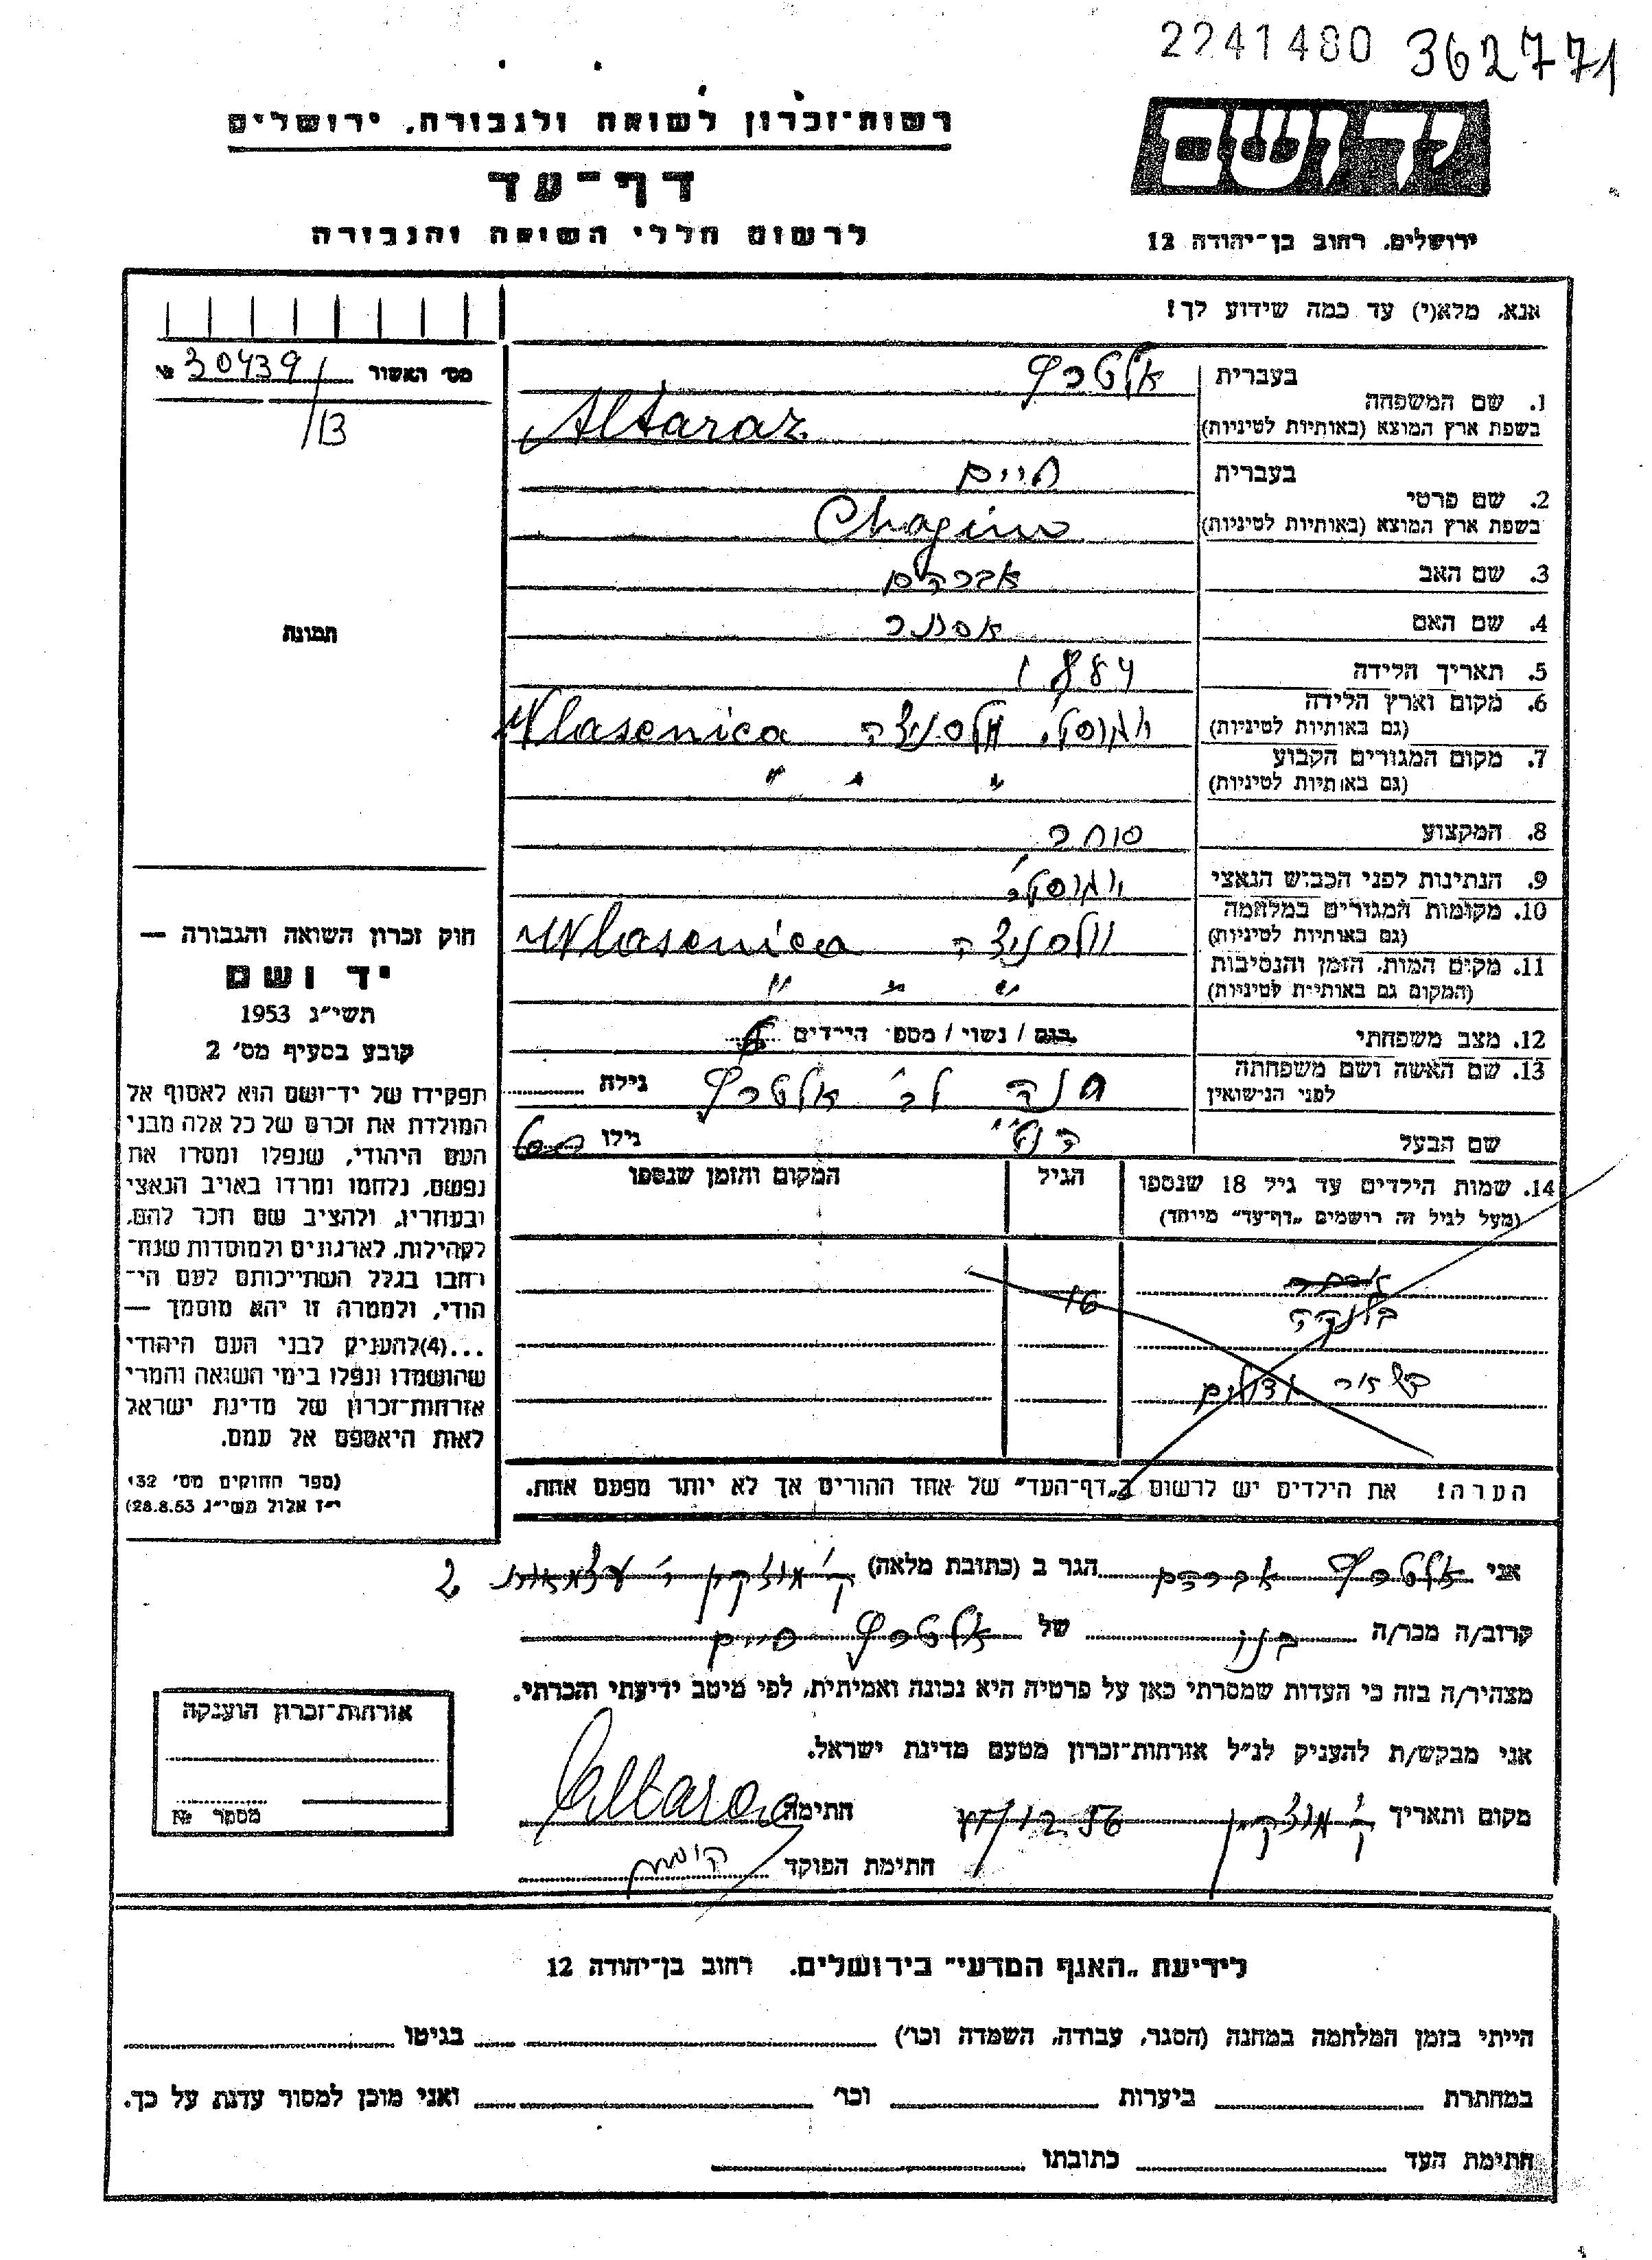 2241480 362771
רשות־זכרון לשואה ולגבורה. ירושלים
דף־עד
לרשום חללי השואה והגבורה
ידושם
ירושלים. רחוב בן־יהודה 12
אנא, מלא(י) עד כמה שידוע לך!
מס' האשור 30439 №
/13
תמונה
בעברית אלטרץ
1. שם המשפחה
בשפת ארץ המוצא (באותיות לטיניות) Altaraz
בעברית חיים
2. שם פרטי
בשפת ארץ המוצא (באותיות לטיניות)
3. שם האב אברהם
4. שם האם אסתר
5. תאריך הלידה 1884
6. מקום וארץ הלידה
(גם באותיות לטיניות) יוגוסל. ולסניצה Wlasenica
7. מקום המגורים הקבוע
(גם באותיות לטיניות) " " "
8. המקצוע סוחר
9. הנתינות לפני הכבוש הנאצי יוגוסל.
10. מקומות המגורים במלחמה
(גם באותיות לטיניות) ולסניצה Wlasenica
11. מקום המות, הזמן והנסיבות
(המקום גם באותיות לטיניות) " " "
12. מצב משפחתי רווק / נשוי / מספר הילדים 6
13. שם האשה ושם משפחתה
לפני הנישואין חנה לב' אלטרץ גילה
שם הבעל גילו
14. שמות הילדים עד גיל 18 שנספו הגיל המקום והזמן שנספו
(מעל לגיל זה רושמים „דף־עד" מיוחד)
16
בלנקה
הערה! את הילדים יש לרשום ב„דף־העד" של אחד ההורים אך לא יותר מפעם אחת.
חוק זכרון השואה והגבורה —
יד ושם
תשי"ג 1953
קובע בסעיף מס' 2
תפקידו של יד־ושם הוא לאסוף אל
המולדת את זכרם של כל אלה מבני
העם היהודי, שנפלו ומסרו את
נפשם, נלחמו ומרדו באויב הנאצי
ובעוזריו, ולהציב שם וזכר להם,
לקהילות, לארגונים ולמוסדות שנח־
רבו בגלל השתייכותם לעם הי־
הודי, ולמטרה זו יהא מוסמך —
...(4)להעניק לבני העם היהודי
שהושמדו ונפלו בימי השואה והמרי
אזרחות־זכרון של מדינת ישראל
לאות היאספם אל עמם.
(ספר החוקים מס' 132
י"ז אלול תשי"ג 28.8.53)
אני אלטרץ אברהם הגר ב (כתובת מלאה) ק' מוצקין ר' עצמאות 2
קרוב/ה מכר/ה בנו של אלטרץ חיים
מצהיר/ה בזה כי העדות שמסרתי כאן על פרטיה היא נכונה ואמיתית, לפי מיטב ידיעתי והכרתי.
אני מבקש/ת להעניק לנ"ל אזרחות־זכרון מטעם מדינת ישראל.
מקום ותאריך ק' מוצקין חתימה Altaraz
חתימת הפוקד
אזרחות־זכרון הוענקה
מספר №
לידיעת „האגף המדעי" בירושלים. רחוב בן־יהודה 12
הייתי בזמן המלחמה במחנה (הסגר, עבודה, השמדה וכו') בגיטו
במחתרת ביערות וכו' ואני מוכן למסור עדות על כך.
חתימת העד כתובתו